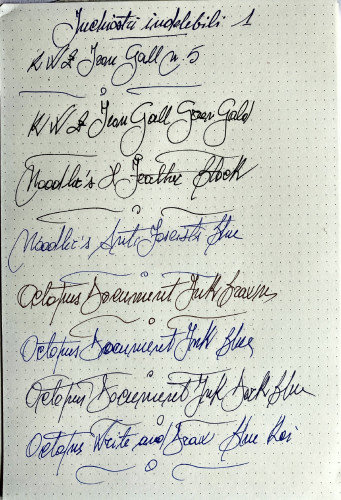 Inchiostri indelebili 1
KWZ Iron Gall n. 5
KWZ Iron Gall Green Gold
Noodler's X-Feather Black
Noodler's Anti Feather Blue
Octopus Document Ink Brown
Octopus Document Ink Blue
Octopus Document Ink Dark Blue
Octopus Write and Draw Blue Koi